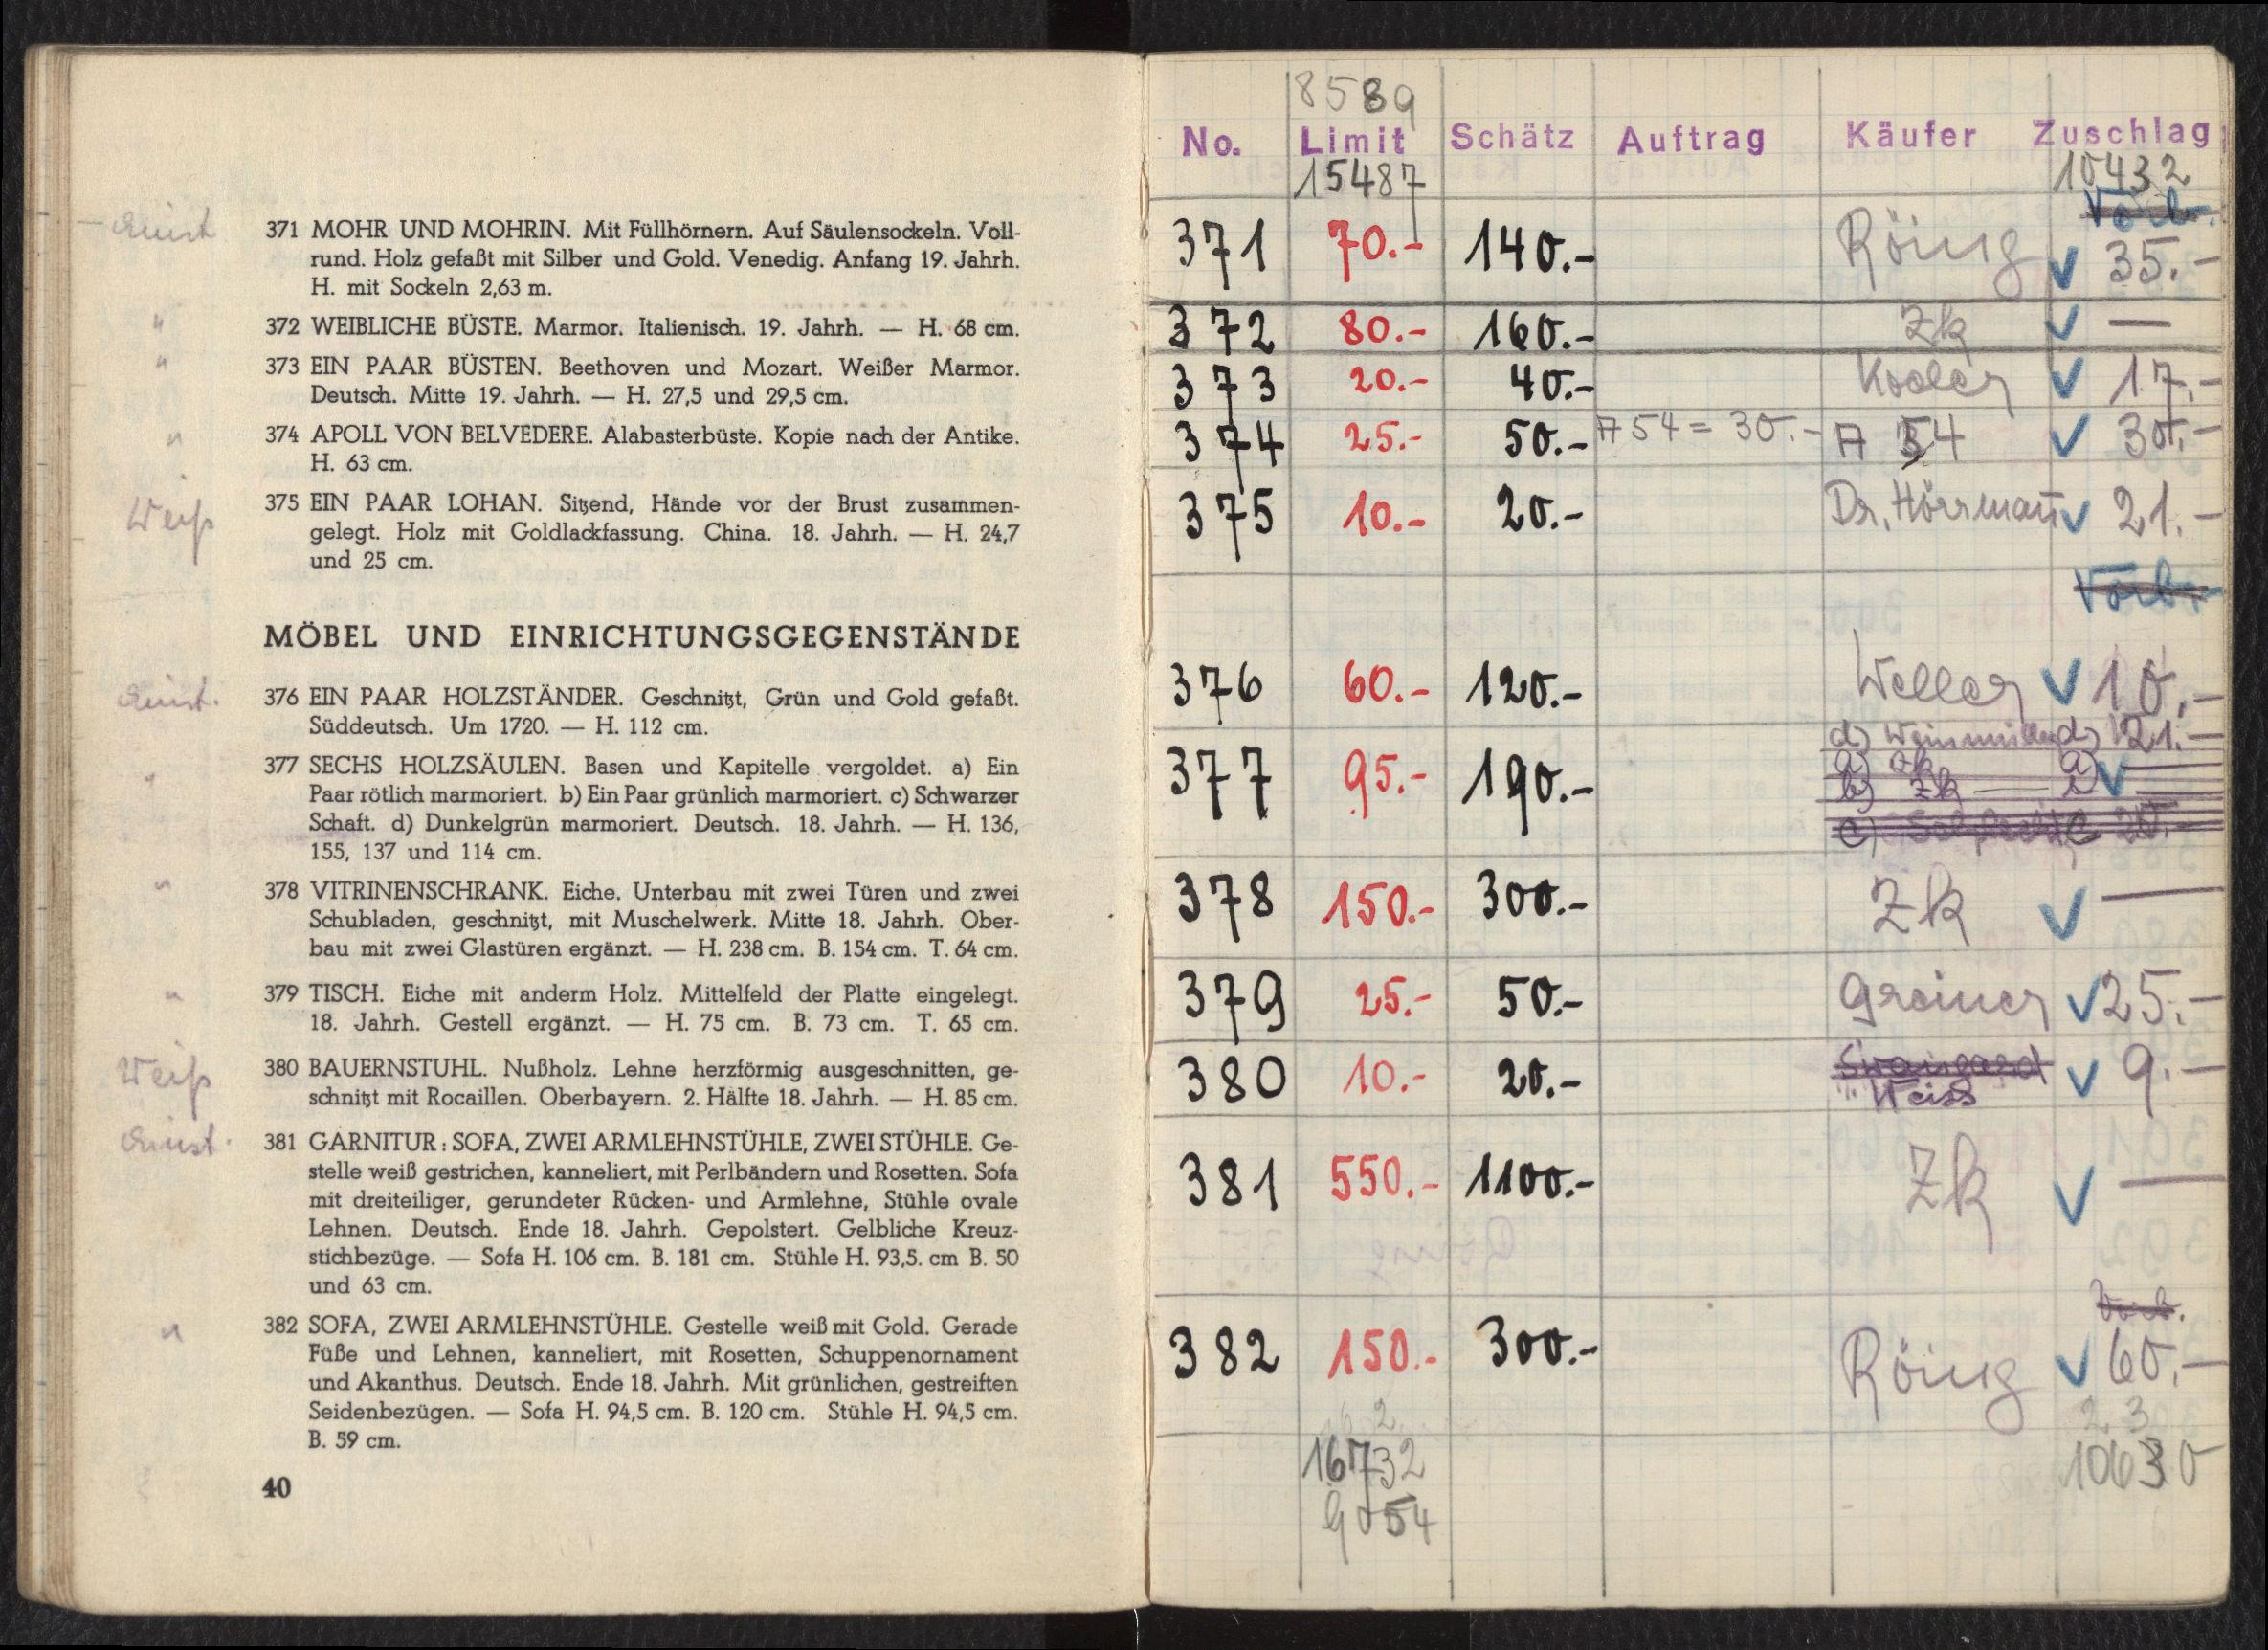 371 MOHR UND MOHRIN. Mit Füllhörnern. Auf Säulensockeln. Voll-
rund. Holz gefaßt mit Silber und Gold. Venedig. Anfang 19. Jahrh.
H. mit Sockeln 2,63 m.
"
372 WEIBLICHE BÜSTE. Marmor. Italienisch. 19. Jahrh. — H. 68 cm.
"
373 EIN PAAR BÜSTEN. Beethoven und Mozart. Weißer Marmor.
Deutsch. Mitte 19. Jahrh. — H. 27,5 und 29,5 cm.
"
374 APOLL VON BELVEDERE. Alabasterbüste. Kopie nach der Antike.
H. 63 cm.
Weiß
375 EIN PAAR LOHAN. Sitzend, Hände vor der Brust zusammen-
gelegt. Holz mit Goldlackfassung. China. 18. Jahrh. — H. 24,7
und 25 cm.
MÖBEL UND EINRICHTUNGSGEGENSTÄNDE
376 EIN PAAR HOLZSTÄNDER. Geschnitzt, Grün und Gold gefaßt.
Süddeutsch. Um 1720. — H. 112 cm.
"
377 SECHS HOLZSÄULEN. Basen und Kapitelle vergoldet. a) Ein
Paar rötlich marmoriert. b) Ein Paar grünlich marmoriert. c) Schwarzer
Schaft. d) Dunkelgrün marmoriert. Deutsch. 18. Jahrh. — H. 136,
155, 137 und 114 cm.
"
378 VITRINENSCHRANK. Eiche. Unterbau mit zwei Türen und zwei
Schubladen, geschnitzt, mit Muschelwerk. Mitte 18. Jahrh. Ober-
bau mit zwei Glastüren ergänzt. — H. 238 cm. B. 154 cm. T. 64 cm.
"
379 TISCH. Eiche mit anderm Holz. Mittelfeld der Platte eingelegt.
18. Jahrh. Gestell ergänzt. — H. 75 cm. B. 73 cm. T. 65 cm.
Weiß
380 BAUERNSTUHL. Nußholz. Lehne herzförmig ausgeschnitten, ge-
schnitzt mit Rocaillen. Oberbayern. 2. Hälfte 18. Jahrh. — H. 85 cm.
381 GARNITUR: SOFA, ZWEI ARMLEHNSTÜHLE, ZWEI STÜHLE. Ge-
stelle weiß gestrichen, kanneliert, mit Perlbändern und Rosetten. Sofa
mit dreiteiliger, gerundeter Rücken- und Armlehne, Stühle ovale
Lehnen. Deutsch. Ende 18. Jahrh. Gepolstert. Gelbliche Kreuz-
stichbezüge. — Sofa H. 106 cm. B. 181 cm. Stühle H. 93,5. cm B. 50
und 63 cm.
"
382 SOFA, ZWEI ARMLEHNSTÜHLE. Gestelle weiß mit Gold. Gerade
Füße und Lehnen, kanneliert, mit Rosetten, Schuppenornament
und Akanthus. Deutsch. Ende 18. Jahrh. Mit grünlichen, gestreiften
Seidenbezügen. — Sofa H. 94,5 cm. B. 120 cm. Stühle H. 94,5 cm.
B. 59 cm.
40
8589
No. Limit Schätz Auftrag Käufer Zuschlag
15487 10432
Vorb.
371 70.- 140.- Röing ✓ 35.-
372 80.- 160.- Zk ✓ —
373 20.- 40.- ✓ 17.-
374 25.- 50.- A 54 = 30.- A 54 ✓ 30.-
375 10.- 20.- Dr. Hörrmann ✓ 21.-
Vorb.
376 60.- 120.- Weller ✓ 10.-
d) Weinmüller d) 21.-
377 95.- 190.- a) Zk a) ✓ —
b) Zk —
c) 20.-
378 150.- 300.- Zk ✓ —
379 25.- 50.- Greiner ✓ 25.-
380 10.- 20.- ✓ 9.-
Weiss
381 550.- 1100.- Zk ✓ —
Vorb.
382 150.- 300.- Röing ✓ 60.-
2 23
16732 10630
9054